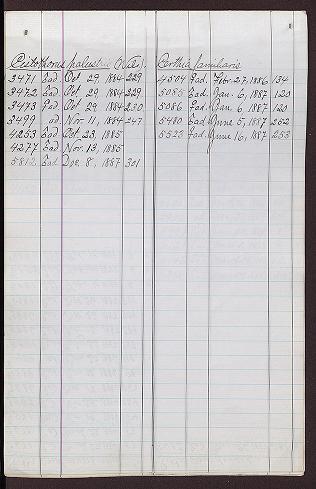 Cistothorus palustris (Wils).
3471 ad. Oct 29, 1884 229
3472 ad. Oct 29, 1884 229
3473 ad. Oct 29, 1884 230
3499 ad. Nov. 11, 1884 247
4253 ad. Oct. 23, 1885
4277 ad. Nov. 13, 1885
5812 ad. Dec. 8, 1887 301
Certhia familiaris
4504 ad. Febr. 27, 1886 134
5085 ad. Jan. 6, 1887 120
5086 ad. Jan. 6, 1887 120
5480 ad. June 5, 1887 252
5523 ad. June 16, 1887 253